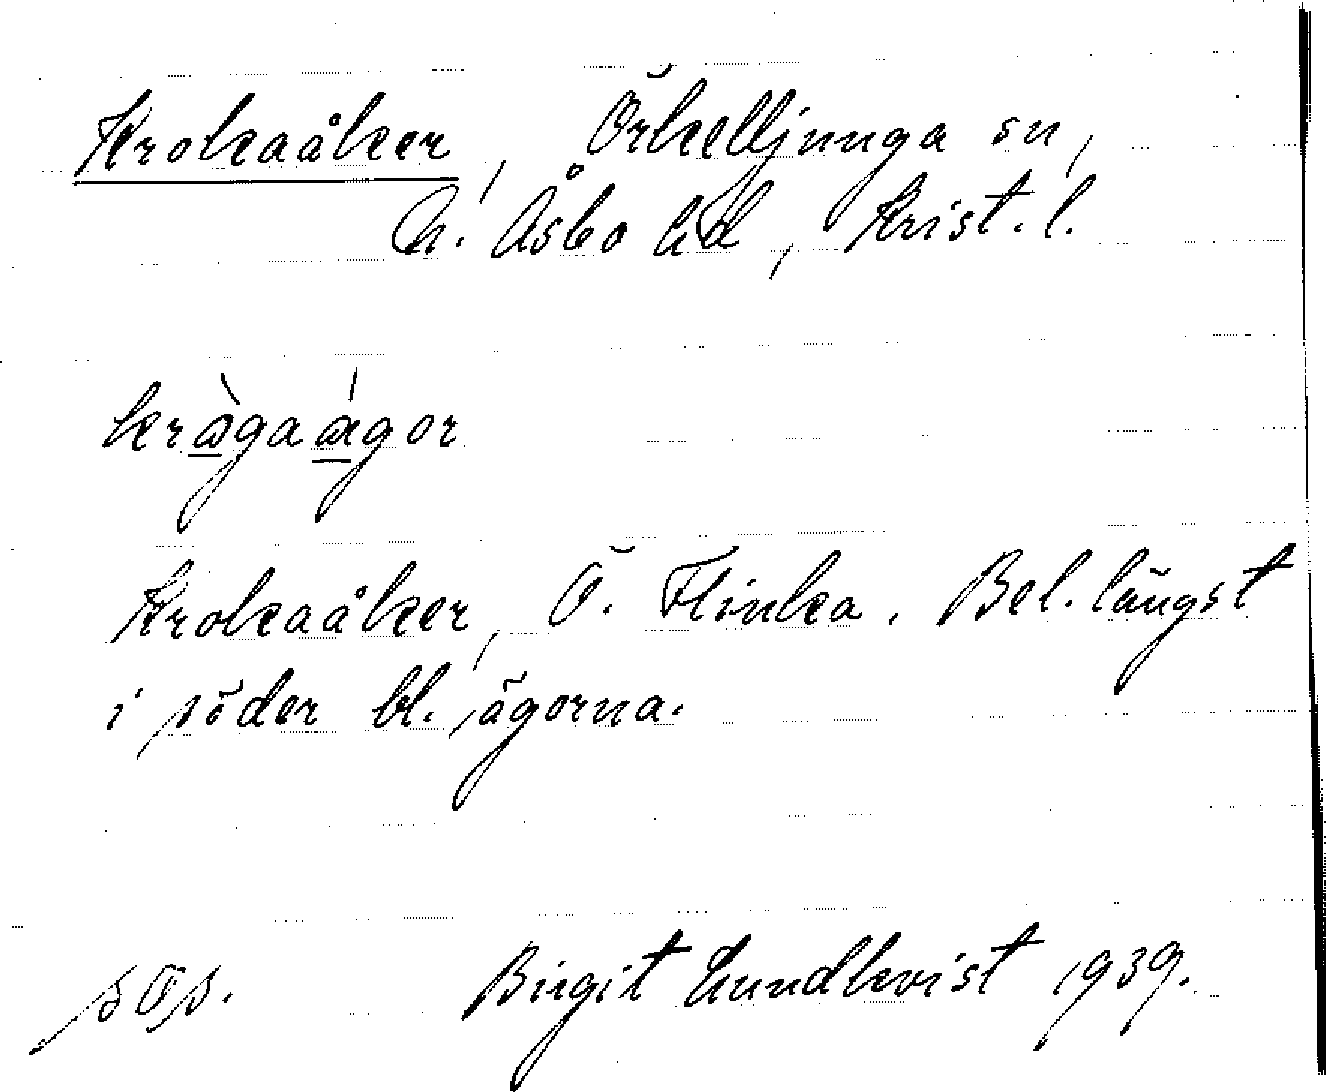 Krokaåker, Örkelljunga sn,
N. Åsbo hd, Krist. l.
Krokaåker, Ö. Flinka. Bel. längst
i söder bl. ägorna.
Birgit Lundkvist 1939.